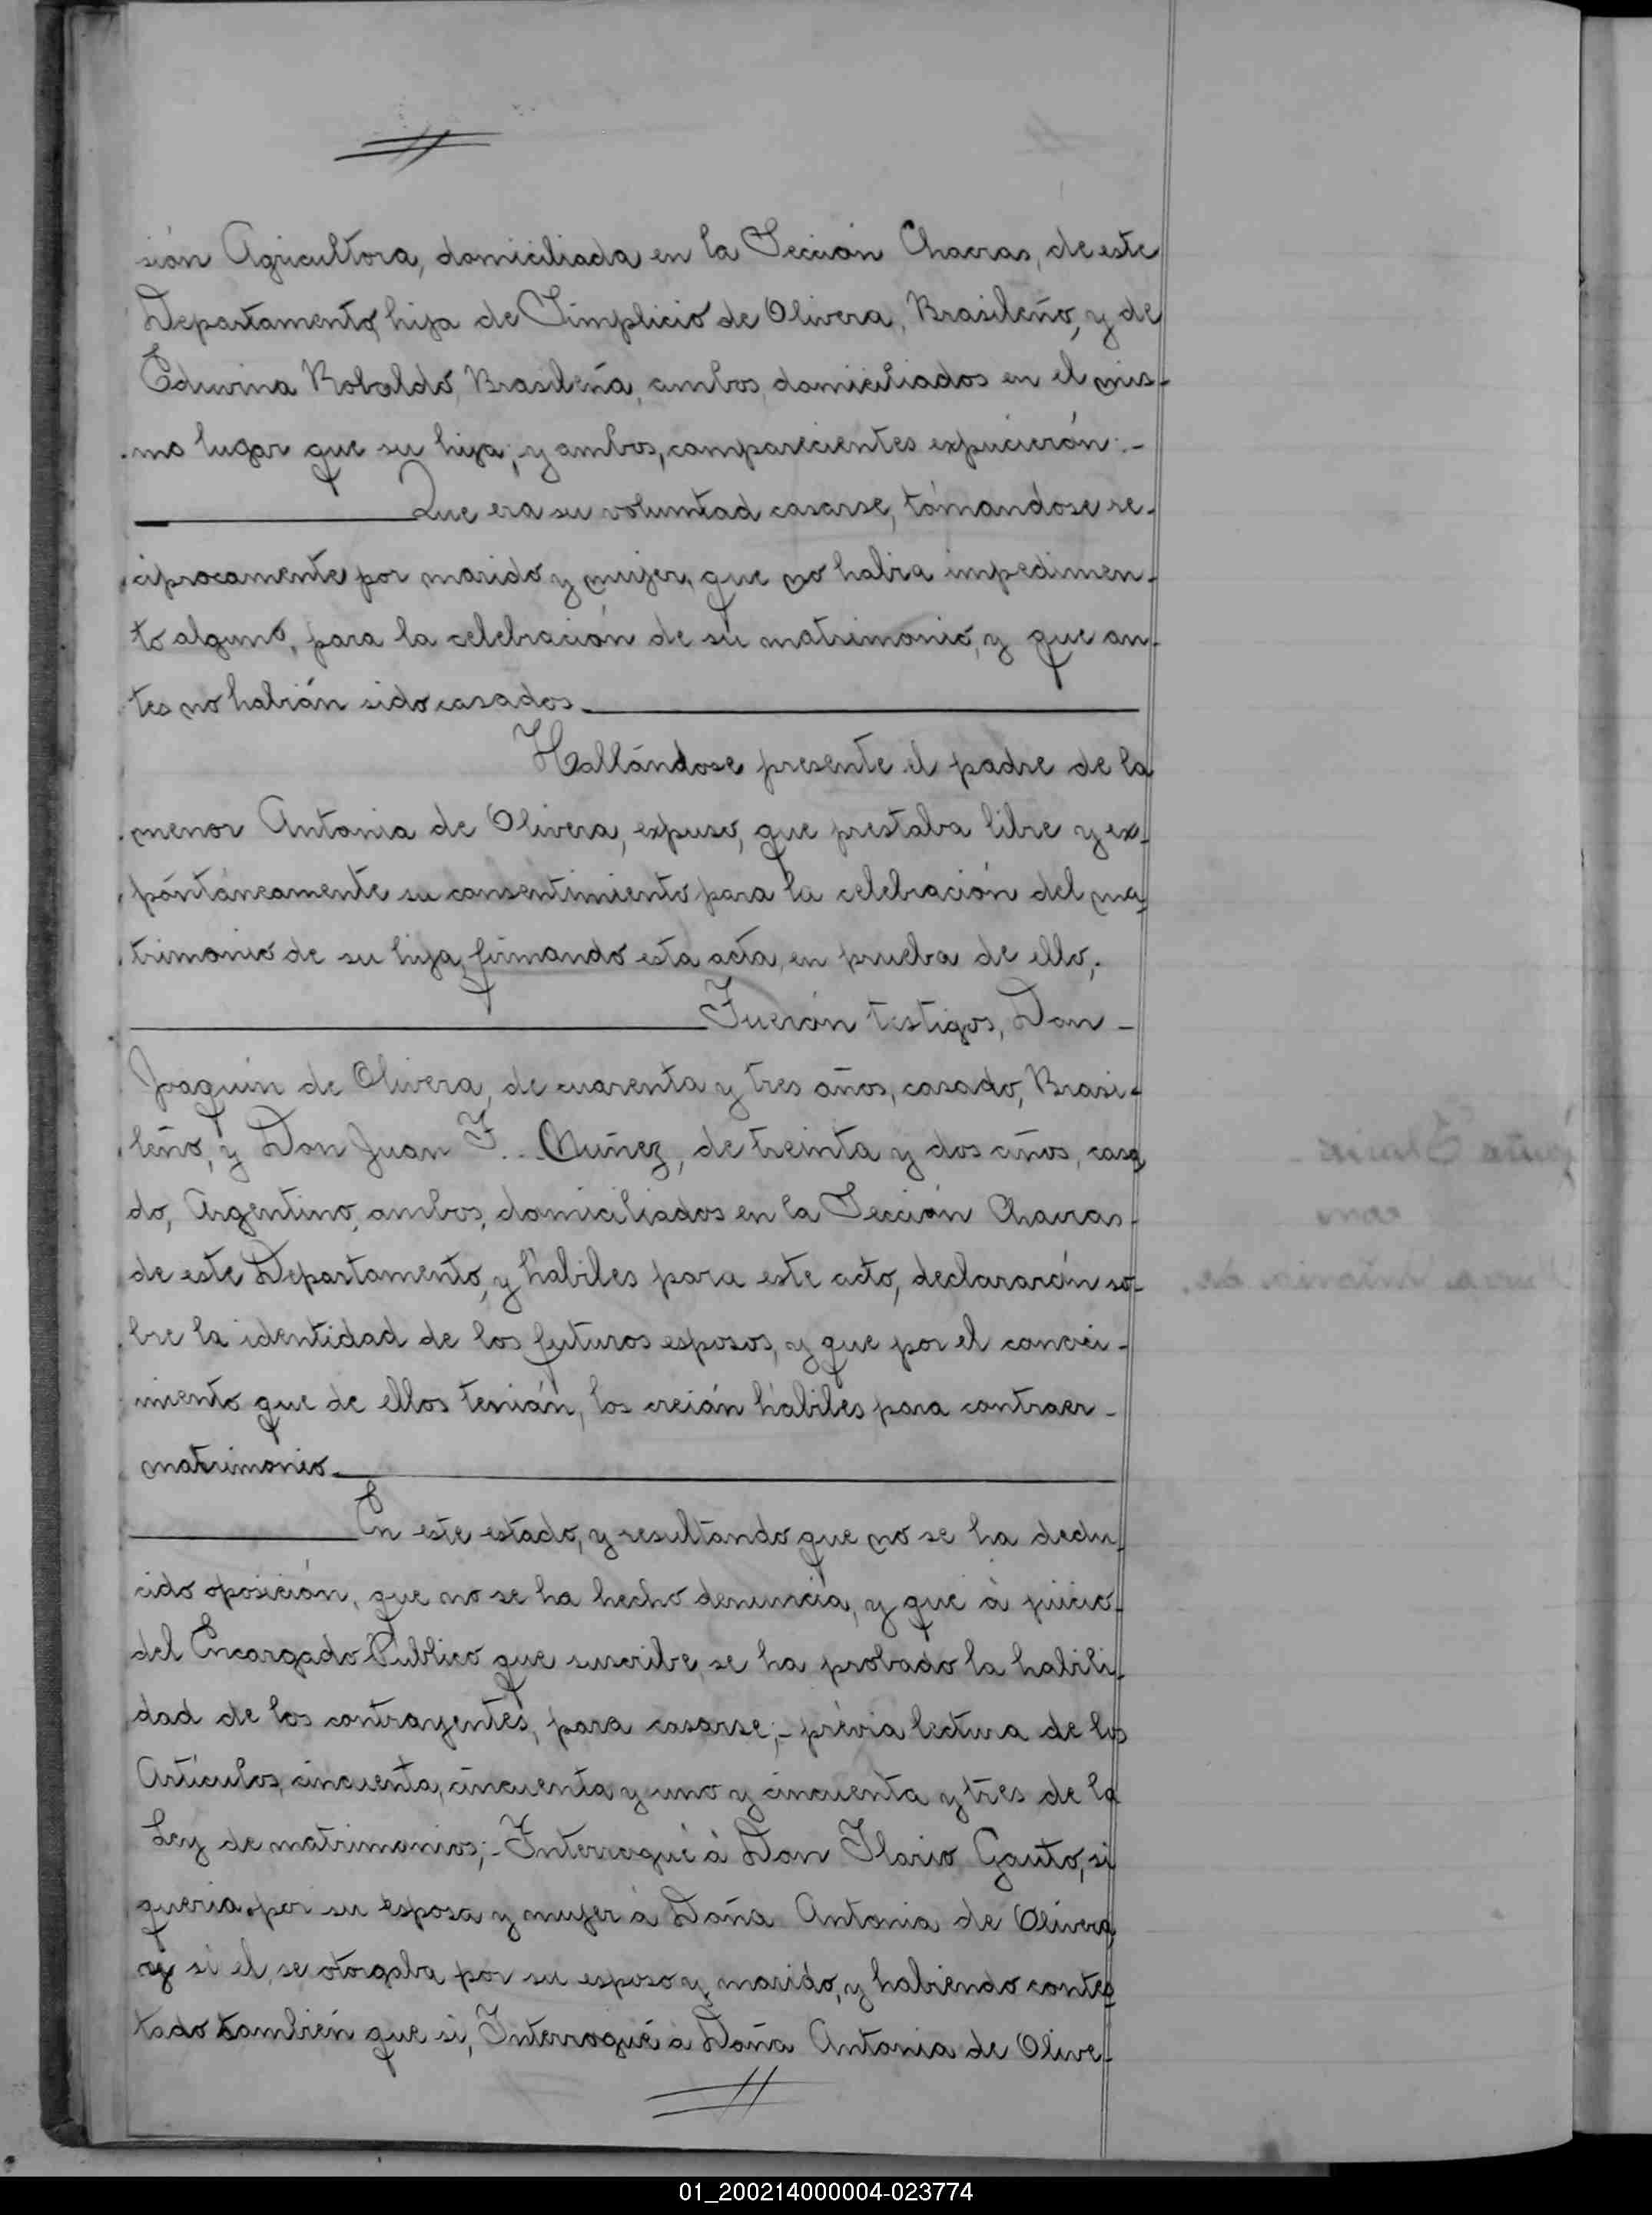 sión Agricultora, domiciliada en la Sección Chacras, de este
Departamento, hija de Simplicio de Olivera, Brasileño, y de
Eduvina Robaldo, Brasileña, ambos domiciliados en el mis-
mo lugar que su hija; y ambos, comparecientes expucierón:-
Que era su voluntad casarse, tómandose re-
ciprocamente por marido y mujer, que no habia impedimen-
to alguno, para la celebración de su matrimonio, y que an-
tes no habián sido casados
Hallándose presente el padre de la
menor Antonia de Olivera, expuso, que prestaba libre y ex-
póntáneamente su consentimiento para la celebración del ma-
trimonio de su hija, firmando esta acta, en prueba de ello;.
Fuerón testigos, Don -
Joaquin de Olivera, de cuarenta y tres años, casado, Brasi-
leño, y Don Juan F. Nuñez, de treinta y dos años, casa
do, Argentino, ambos, domiciliados en la Sección Chacras-
de este Departamento, y hábiles para este acto, declararón so-
bre la identidad de los futuros esposos, y que por el conoci-
miento que de ellos tenián, los creián hábiles para contraer-
matrimonio
En este estado, y resultando que no se ha dedu-
cido oposición, que no se ha hecho denuncia, y que á juicio-
del Encargado Público que suscribe, se ha probado la habili-
dad de los contrayentes, para casarse;- prévia lectura de los
Artículos, cincuenta, cincuenta y uno y cincuenta y tres de la
Ley de matrimonios;- Interrogué á Don Ilario Gauto, si
queria por su esposa y mujer á Doña Antonia de Olivera,
y si el, se otorgaba por su esposo y marido, y habiendo contes
tado también que si, Interrogué á Doña Antonia de Olive-
01_200214000004-023774